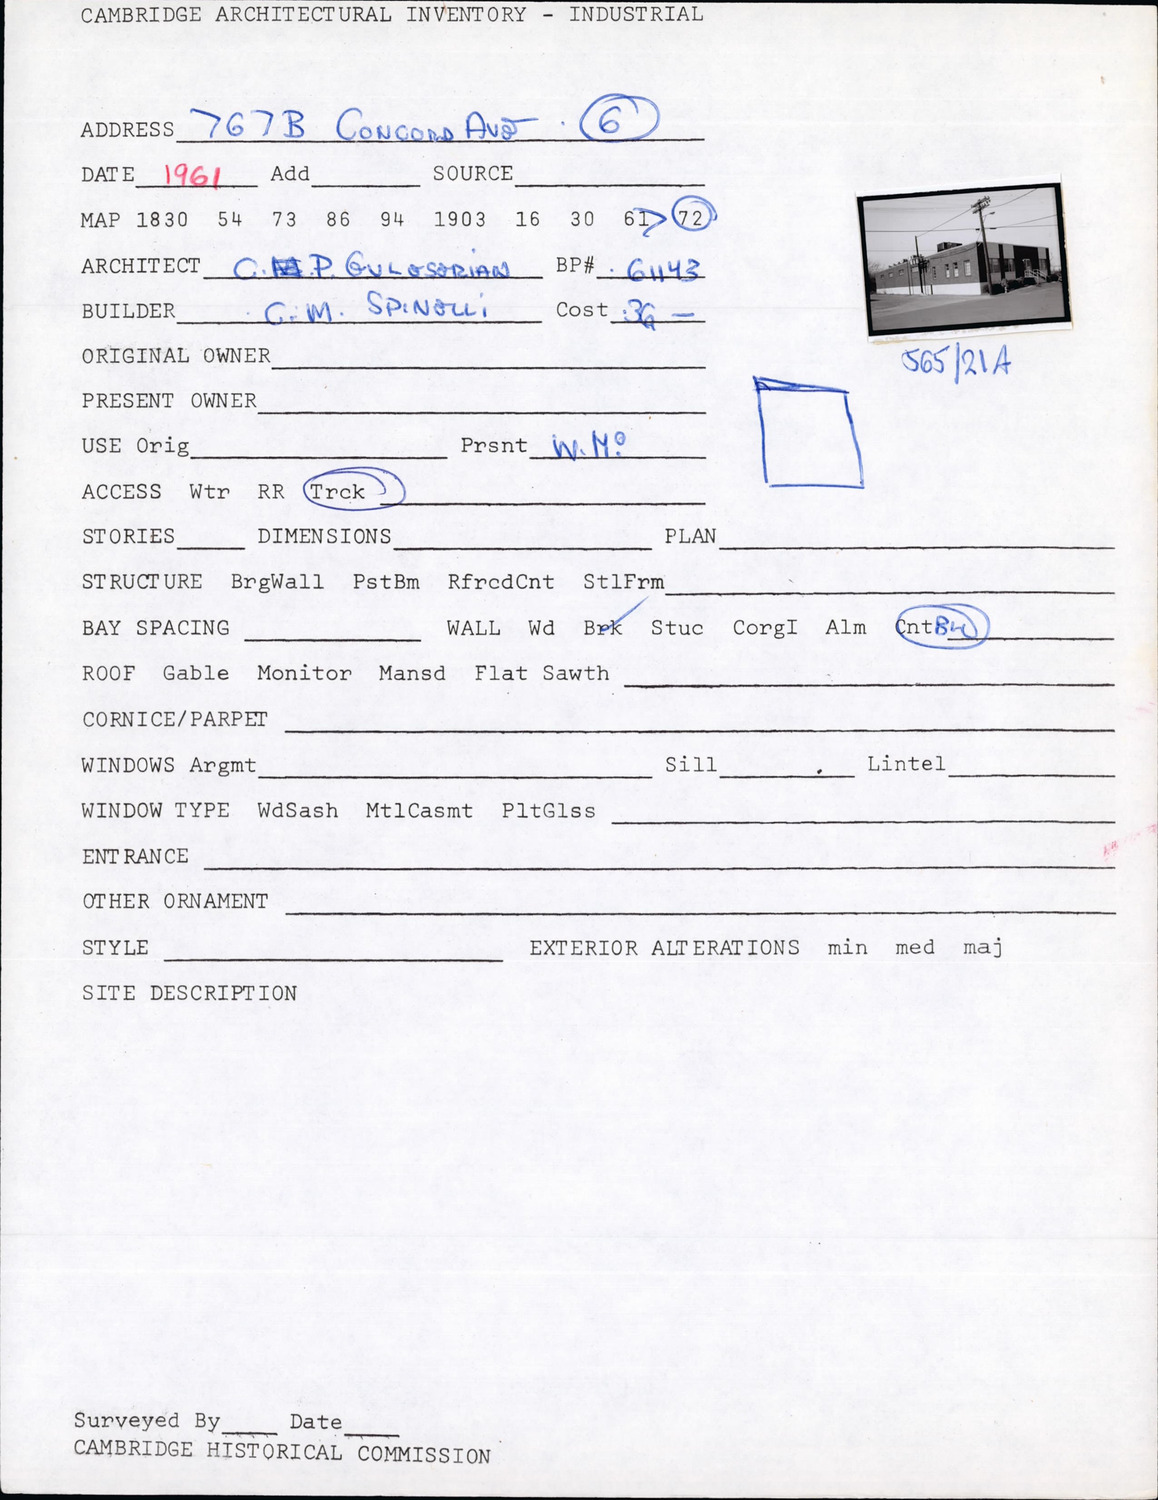 CAMBRIDGE ARCHITECTURAL INVENTORY - INDUSTRIAL
ADDRESS 767B CONCORD AVE. 6
DATE 1961 Add SOURCE
MAP 1830 54 73 86 94 1903 16 30 61 > 72
ARCHITECT C. P. GULESERIAN BP# 61143
BUILDER C. M. SPINELLI Cost 36 —
ORIGINAL OWNER
565/21A
PRESENT OWNER
USE Orig Prsnt W.Ho
ACCESS Wtr RR Trck
STORIES DIMENSIONS PLAN
STRUCTURE BrgWall PstBm RfrcdCnt StlFrm
BAY SPACING WALL Wd Brk Stuc CorgI Alm Cnt
ROOF Gable Monitor Mansd Flat Sawth
CORNICE/PARPET
WINDOWS Argmt Sill Lintel
WINDOW TYPE WdSash MtlCasmt PltGlss
ENTRANCE
OTHER ORNAMENT
STYLE EXTERIOR ALTERATIONS min med maj
SITE DESCRIPTION
Surveyed By Date
CAMBRIDGE HISTORICAL COMMISSION